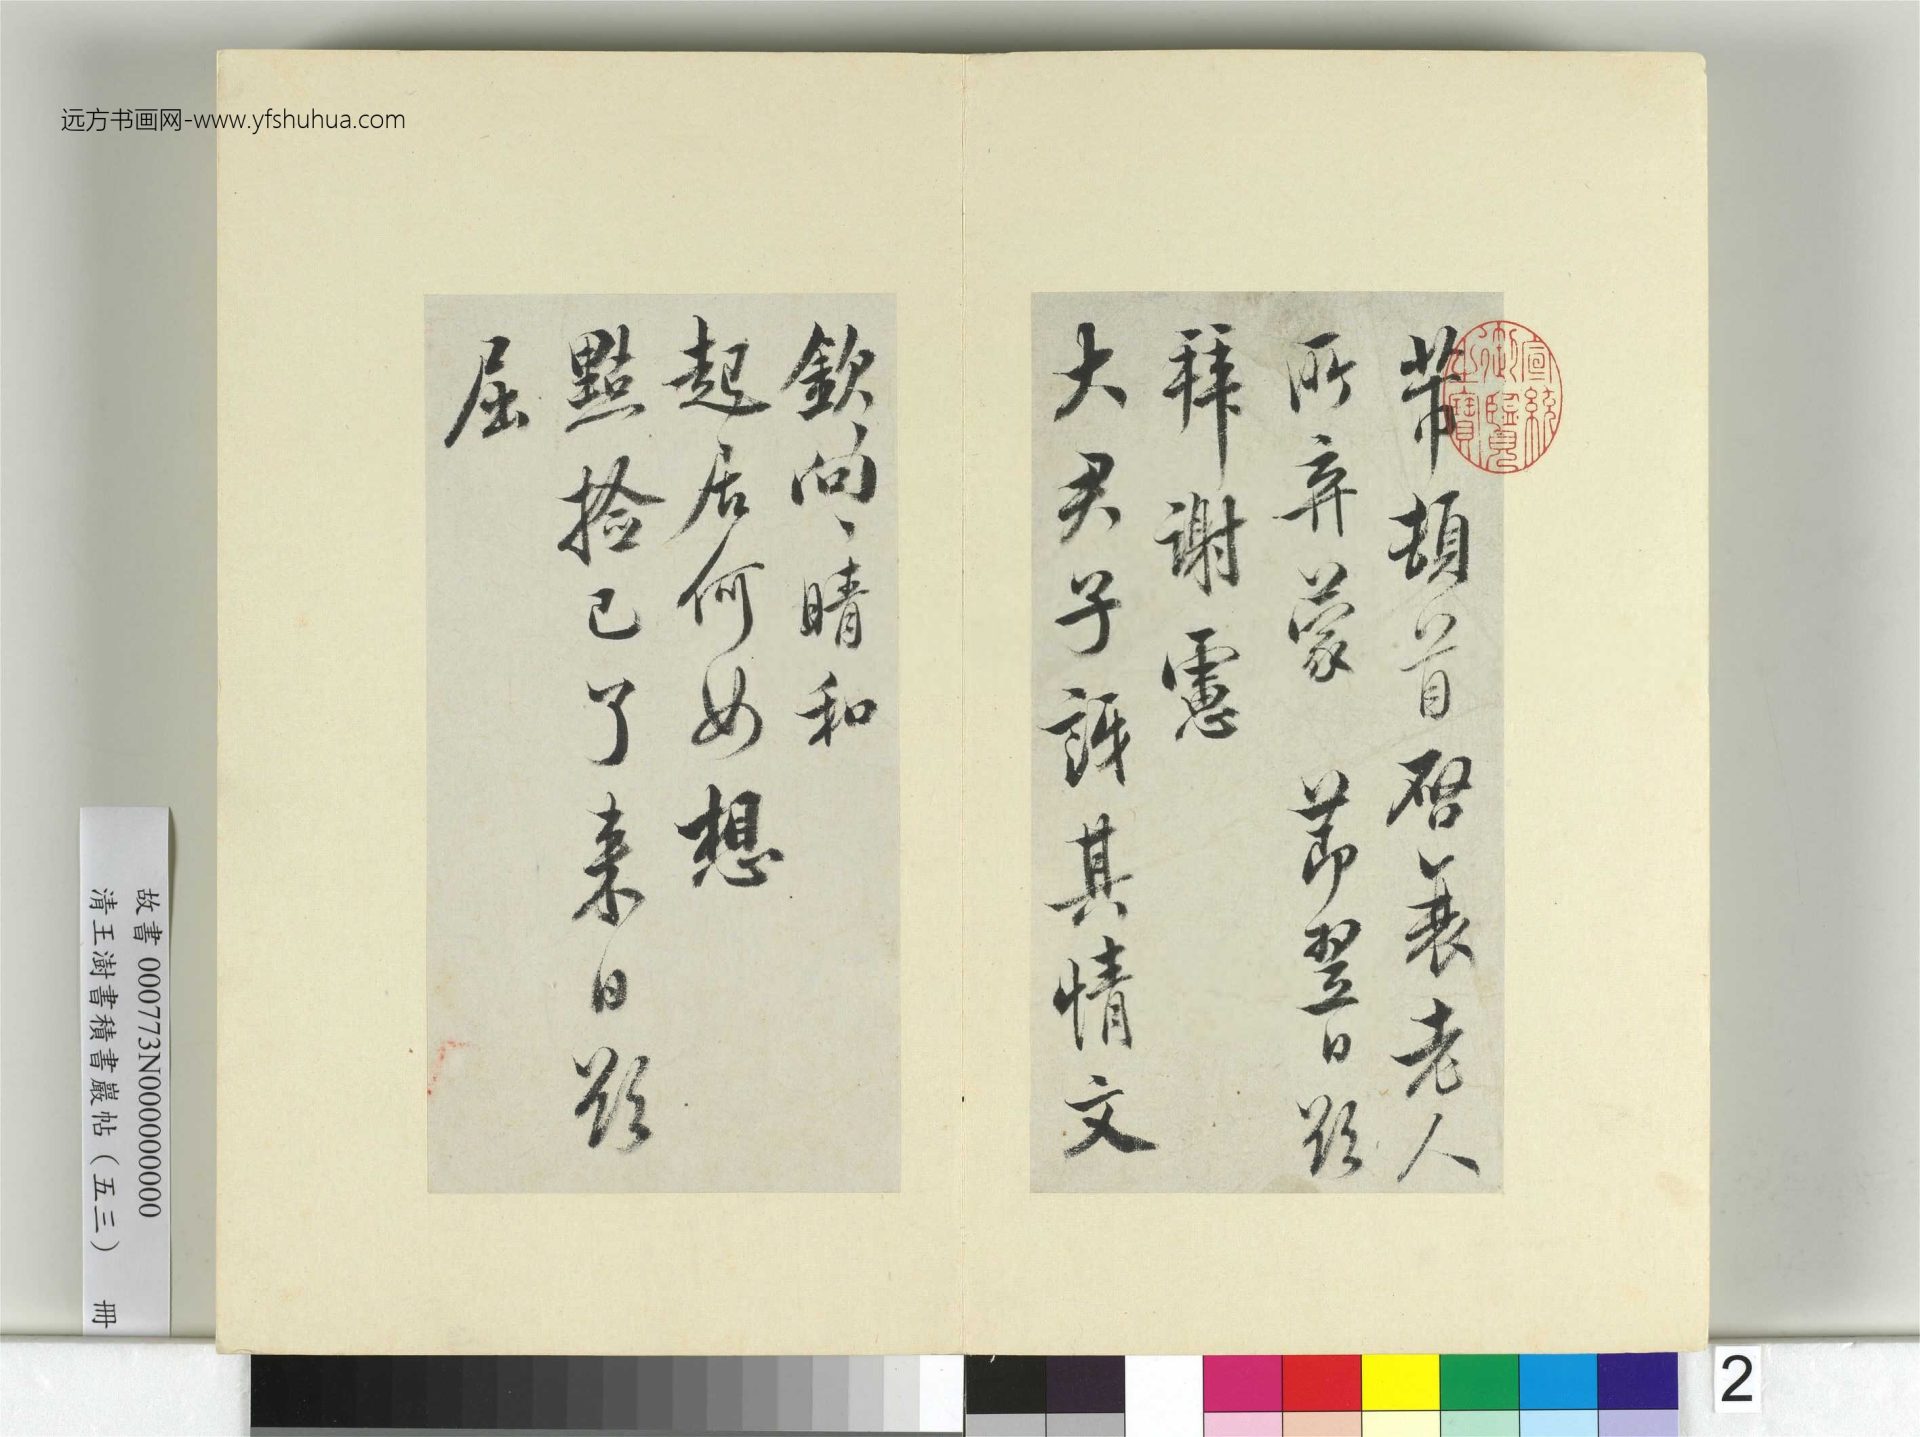 远方书画网-www.yfshuhua.com
芾頓首啓衰老人
所弃蒙 節翌日欵
拜謝憲
大君子其情文
欽向〻晴和
起居何如想
點撿已了来日欵
屈
宣統御覽之寶
故書 000773N000000000
清王澍書積書巖帖(五三) 冊
2